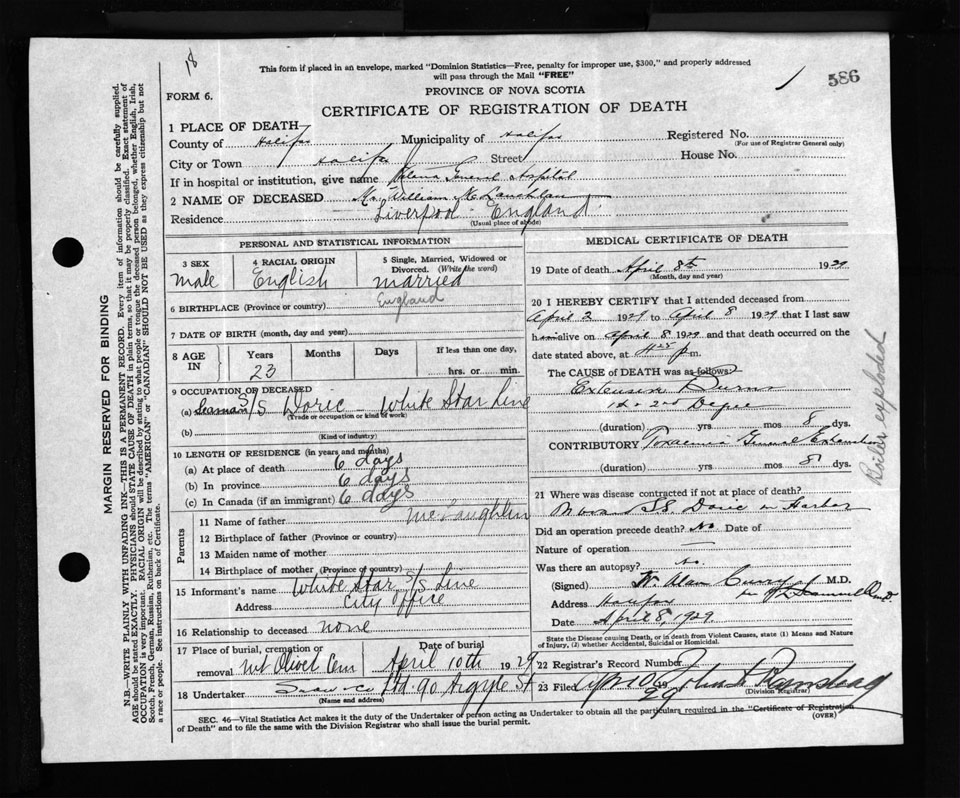 18
This form if placed in an envelope, marked "Dominion Statistics—Free, penalty for improper use, $300," and properly addressed
will pass through the Mail "FREE"
586
PROVINCE OF NOVA SCOTIA
FORM 6.
CERTIFICATE OF REGISTRATION OF DEATH
1 PLACE OF DEATH
County of Halifax Municipality of Halifax Registered No.
(For use of Registrar General only)
City or Town Halifax Street House No.
If in hospital or institution, give name General Hospital
2 NAME OF DECEASED Mr. William McLaughlan
Residence Liverpool England
(Usual place of abode)
PERSONAL AND STATISTICAL INFORMATION
3 SEX 4 RACIAL ORIGIN 5 Single, Married, Widowed or
Divorced. (Write the word)
Male English Married
6 BIRTHPLACE (Province or country) England
7 DATE OF BIRTH (month, day and year)
8 AGE IN Years Months Days If less than one day,
23 hrs. or min.
9 OCCUPATION OF DECEASED
(a) Seaman S/S Doric White Star Line
(Trade or occupation or kind of work)
(b)
(Kind of industry)
10 LENGTH OF RESIDENCE (in years and months)
(a) At place of death 6 days
(b) In province 6 days
(c) In Canada (if an immigrant) 6 days
Parents
11 Name of father McLaughlin
12 Birthplace of father (Province or country)
13 Maiden name of mother
14 Birthplace of mother (Province of country)
15 Informant's name White Star S/S Line
Address City Office
16 Relationship to deceased none
17 Place of burial, cremation or removal Mt Olivet Cem
Date of burial April 10th 1929
18 Undertaker Snow Co Ltd. 90 Argyle St
(Name and address)
MEDICAL CERTIFICATE OF DEATH
19 Date of death April 8th 1929
(Month, day and year)
20 I HEREBY CERTIFY that I attended deceased from
April 2 1929 to April 8 1929 that I last saw
him alive on April 8 1929 and that death occurred on
date stated above, at p.m.
The CAUSE of DEATH was as follows:
Extensive Burns
1st & 2nd Degree
(duration) yrs mos 8 dys.
CONTRIBUTORY Toxaemia General
(duration) yrs mos 8 dys.
Boiler exploded
21 Where was disease contracted if not at place of death?
S.S. Doric in Harbor
Did an operation precede death? No. Date of
Nature of operation —
Was there an autopsy? No.
(Signed) W. Alan Curry M.D.
Address Halifax
Date April 8, 1929
State the Disease causing Death, or in death from Violent Causes, state (1) Means and Nature
of Injury, (2) whether Accidental, Suicidal or Homicidal.
22 Registrar's Record Number
23 Filed Apr 10 1929 John
(Division Registrar)
SEC. 46—Vital Statistics Act makes it the duty of the Undertaker or person acting as Undertaker to obtain all the particulars required in the "Certificate of Registration
of Death" and to file the same with the Division Registrar who shall issue the burial permit.
(OVER)
MARGIN RESERVED FOR BINDING
N.B.—WRITE PLAINLY WITH UNFADING INK—THIS IS A PERMANENT RECORD. Every item of information should be carefully supplied.
AGE should be stated EXACTLY. PHYSICIANS should STATE CAUSE OF DEATH in plain terms, so that it may be properly classified. Exact statement of
OCCUPATION is very important. RACIAL ORIGIN will be described by stating to what people or tongue the deceased person belonged, whether English, Irish,
Scotch, French, German, Russian, Ruthenian, etc. The terms "AMERICAN" or "CANADIAN" SHOULD NOT BE USED as they express citizenship but not
a race or people. See instructions on back of Certificate.